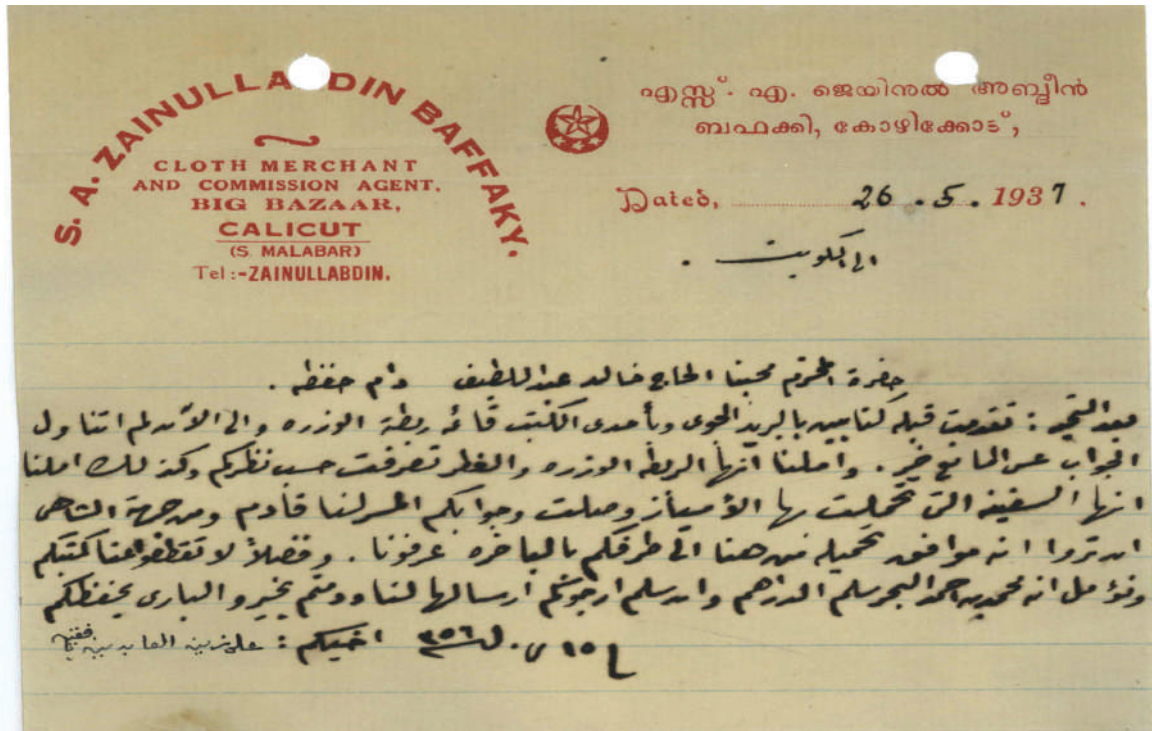 S. A. ZAINULLABDIN BAFFAKY.
CLOTH MERCHANT
AND COMMISSION AGENT.
BIG BAZAAR,
CALICUT
(S. MALABAR)
Tel:-ZAINULLABDIN.
എസ്സ്. എ. ജെയിനുൽ അബ്ദീൻ
ബഫക്കി, കോഴിക്കോട്,
Dated, 26.5.1937.
الى الكويت .
حضرة المحترم محبنا الحاج خالد عبد اللطيف دام حفظه .
بعد التحيه : تقدمت قبله كتابين بالبريد الجوى وبأحدى الكتب قائمة ربطة الوزره والى الآن لم اتناول
الجواب عسى المانع خير . واملنا انها الربطه الوزره والغطر تصرفت حسب نظركم وكذلك املنا
انها السفينه التى تحملت بها وصلت وجوابكم المسر لنا قادم ومن جهة الشاهى
ان تروا انه موافق تحميله من هنا الى طرفكم بالباخره عرفونا . وفضلاً لا تقطعوا عنا كتبكم
ونؤمل انه محمد البحر سلم الدراهم وان سلم ارجوكم ارسالها لنا ودمتم بخير والبارى يحفظكم
١٥ ٣٥٦ اخيكم : على زين العابدين بافقيه